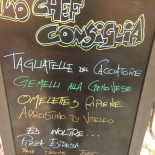 LO CHEF
CONSIGLIA
TAGLIATELLE DEL CACCIATORE
GEMELLI ALLA GENOVESE
OMELETTES RIPIENE
ARROSTINO DI VITELLO
ED INOLTRE...
PIZZA ESPRESSA